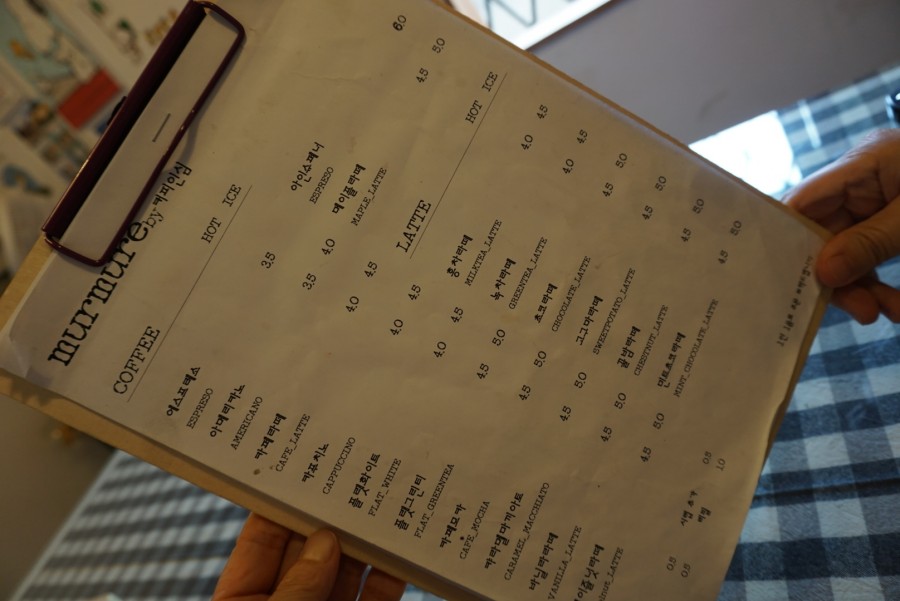 murmure by 커피인심
COFFEE HOT ICE
에스프레소 3.5
ESPRESSO
아메리카노 3.5 4.0
AMERICANO
카페라떼 4.0 4.5
CAFE_LATTE
카푸치노 4.0 4.5
CAPPUCCINO
플랫화이트 4.0 4.5
FLAT_WHITE
플랫그린티 4.5 5.0
FLAT_GREENTEA
카페모카 4.5 5.0
CAFE_MOCHA
카라멜마끼아또 4.5 5.0
CARAMEL_MACCHIATO
바닐라라떼 4.5 5.0
VANILLA_LATTE
헤이즐넛라떼 4.5 5.0
아인슈페너 6.0
ESPRESO
메이플라떼 4.5 5.0
MAPLE_LATTE
LATTE HOT ICE
홍차라떼 4.0 4.5
MILKTEA_LATTE
녹차라떼 4.0 4.5
GREENTEA_LATTE
초코라떼 4.5 5.0
CHOCOLATE_LATTE
고구마라떼 4.5 5.0
SWEETPOTATO_LATTE
꿀밤라떼 4.5 5.0
CHESTNUT_LATTE
민트초코라떼 4.5 5.0
MINT_CHOCOLATE_LATTE
0.5
0.5
시럽 추가 0.5
휘핑 1.0